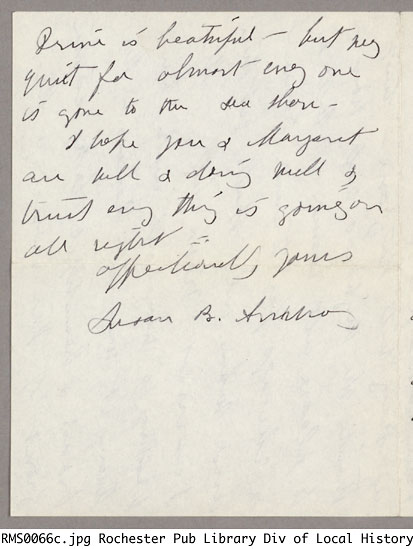 is beautiful - but very
quiet for almost every one
is gone to the sea shore -
I hope you & Margaret
are well & doing well &
trust every thing is going on
all right -
affectionately yours
Susan B. Anthony
RMS0066c.jpg Rochester Pub Library Div of Local History